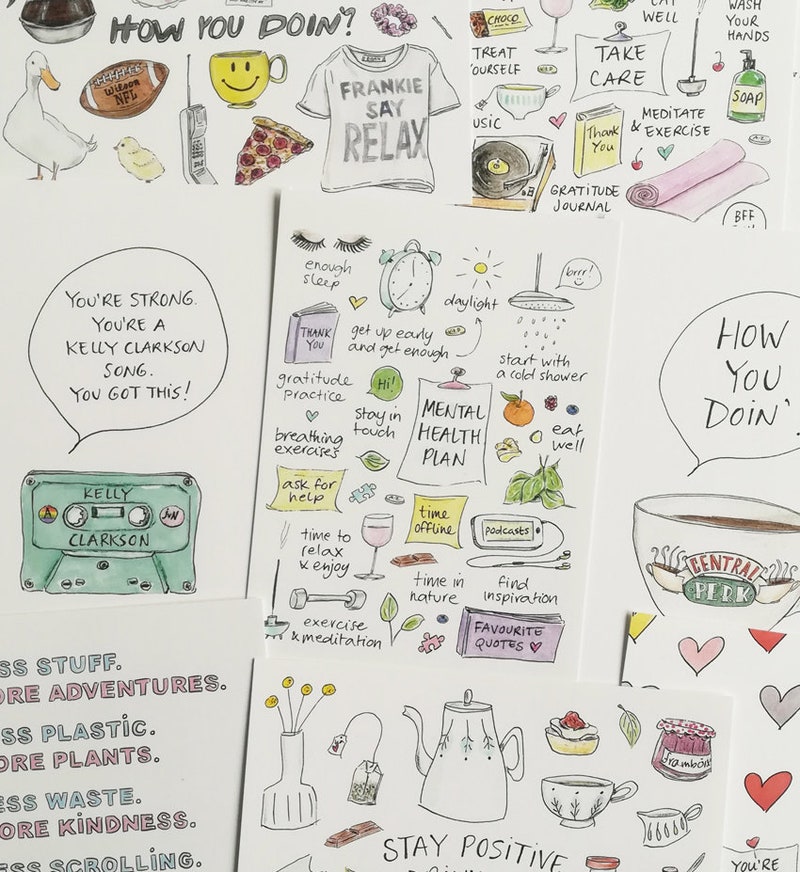 HOW YOU DOIN'?
Wilson
NFL
FRANKIE
SAY
RELAX
CHOCO
TREAT
YOURSELF
EAT
WELL
WASH
YOUR
HANDS
TAKE
CARE
SOAP
Thank
You
MEDITATE
& EXERCISE
GRATITUDE
JOURNAL
BFF
YOU'RE STRONG.
YOU'RE A
KELLY CLARKSON
SONG.
YOU GOT THIS!
KELLY
CLARKSON
enough
sleep
daylight
brrr!
THANK
YOU
get up early
and get enough
start with
a cold shower
gratitude
practice
Hi!
stay in
touch
MENTAL
HEALTH
PLAN
breathing
exercises
eat
well
ask for
help
time
offline
podcasts
time to
relax
& enjoy
time in
nature
find
inspiration
exercise
& meditation
FAVOURITE
QUOTES
HOW
YOU
DOIN'
CENTRAL
PERK
SS STUFF.
ORE ADVENTURES.
SS PLASTIC.
ORE PLANTS.
ESS WASTE.
ORE KINDNESS.
ESS SCROLLING.
framboise
STAY POSITIVE
YOU'RE